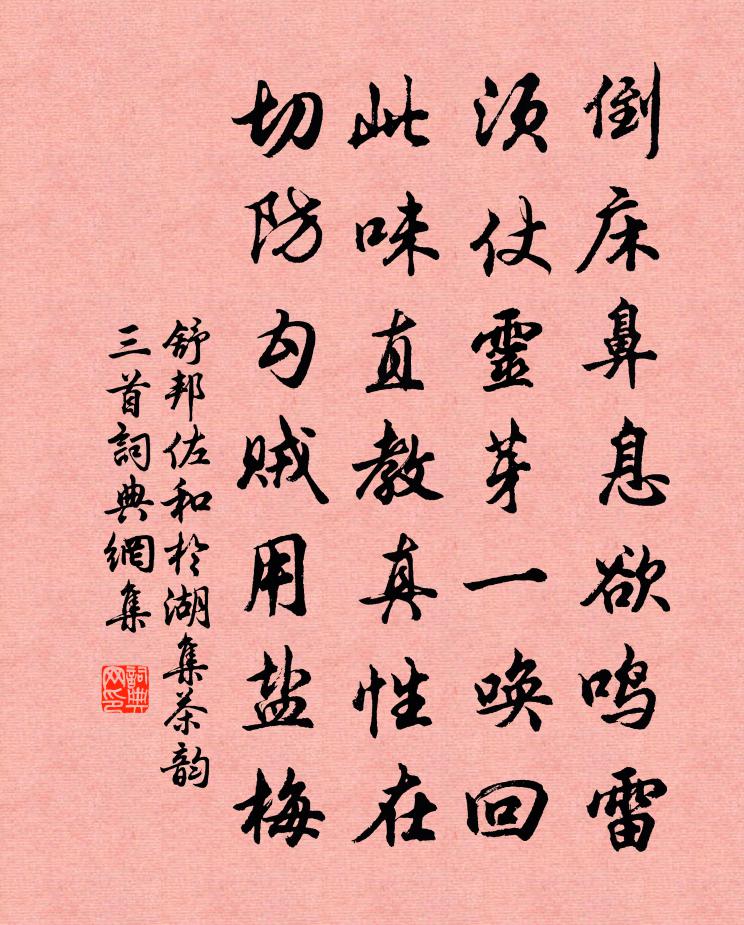 倒床鼻息欲鸣雷
须仗靈芽一唤回
此味直教真性在
切防勾贼用盐梅
舒邦佐和於湖集茶韵
三首詞典網集
詞典网印